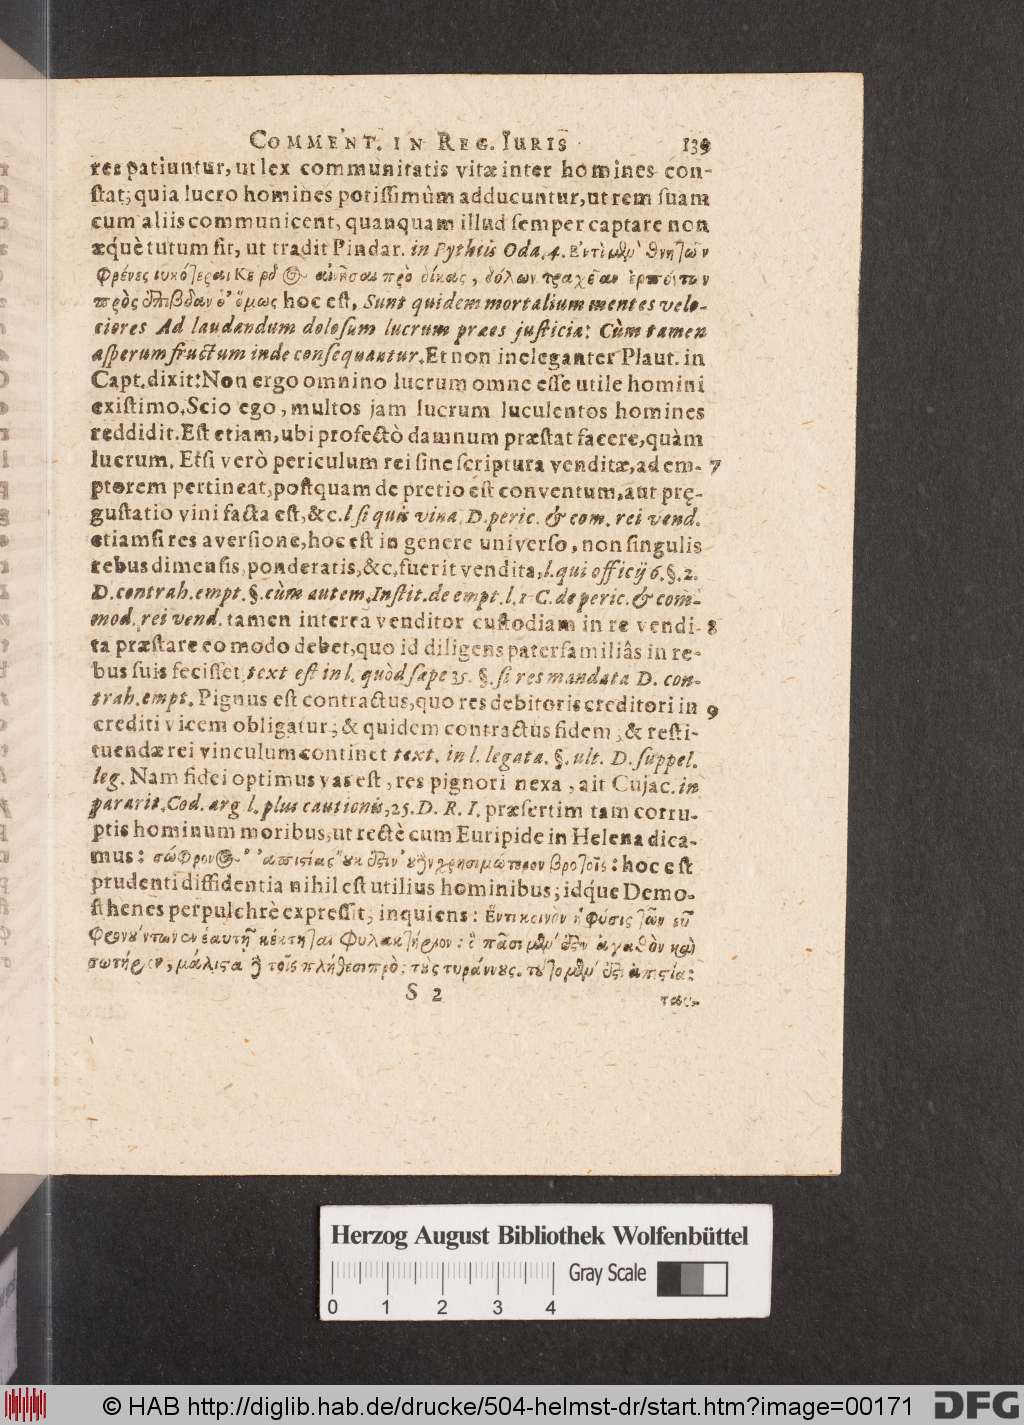 COMMENT. IN REG. IURIS 139
res patiuntur, ut lex communitatis vitæ inter homines con-
stat; quia lucro homines potissimùm adducuntur, ut rem suam
cum aliis communicent, quanquam illud semper captare non
æquè tutum sit, ut tradit Pindar. in Pythiis Oda. 4. Ἐντὶ μὲν θνητῶν
φρένες
πρὸς hoc est, Sunt quidem mortalium mentes velo-
ciores Ad laudandum dolosum lucrum præes justicia: Cùm tamen
asperum fructum inde consequantur. Et non ineleganter Plaut. in
Capt. dixit: Non ergo omnino lucrum omne esse utile homini
existimo, Scio ego, multos jam lucrum luculentos homines
reddidit. Est etiam, ubi profectò damnum præstat facere, quàm
lucrum. Etsi verò periculum rei sine scriptura venditæ, ad em- 7
ptorem pertineat, postquam de pretio est conventum, aut prę-
gustatio vini facta est, &c. l si quis vina, D. peric. & com. rei vend.
etiamsi res aversione, hoc est in genere universo, non singulis
rebus dimensis, ponderatis, &c, fuerit vendita, l. qui officij 6. §. 2.
D. contrah. empt. §. cùm autem, Instit. de empt. l. 1 C. de peric. & com-
mod. rei vend. tamen interea venditor custodiam in re vendi- 8
ta præstare eo modo debet, quo id diligens paterfamiliâs in re-
bus suis fecisset text est in l. quòd sæpe 35. §. si res mandata D. con-
trah. empt. Pignus est contractus, quo res debitoris creditori in 9
crediti vicem obligatur; & quidem contractus fidem, & resti-
tuendæ rei vinculum continet text. in l. legata. §. ult. D. suppel.
leg. Nam fidei optimus vas est, res pignori nexa, ait Cujac. in
pararit. Cod. arg l. plus cautionis, 25. D. R. I. præsertim tam corru-
ptis hominum moribus, ut rectè cum Euripide in Helena dica-
mus: : hoc est
prudenti diffidentia nihil est utilius hominibus; idque Demo-
sthenes perpulchrè expressit, inquiens: Ἕν τι κοινὸν ἡ φύσις τῶν εὖ
φρονούντων ἐν ἑαυτῇ κέκτηται φυλακτήριον: ὃ πᾶσι μὲν ἐστιν ἀγαθὸν καὶ
σωτήριον, μάλιστα δὲ τοῖς πλήθεσι πρὸς τοὺς τυράννους. τοῦτο μὲν ἐστι ἀπιστία:
S 2
Herzog August Bibliothek Wolfenbüttel
Gray Scale
0 1 2 3 4
© HAB http://diglib.hab.de/drucke/504-helmst-dr/start.htm?image=00171 DFG